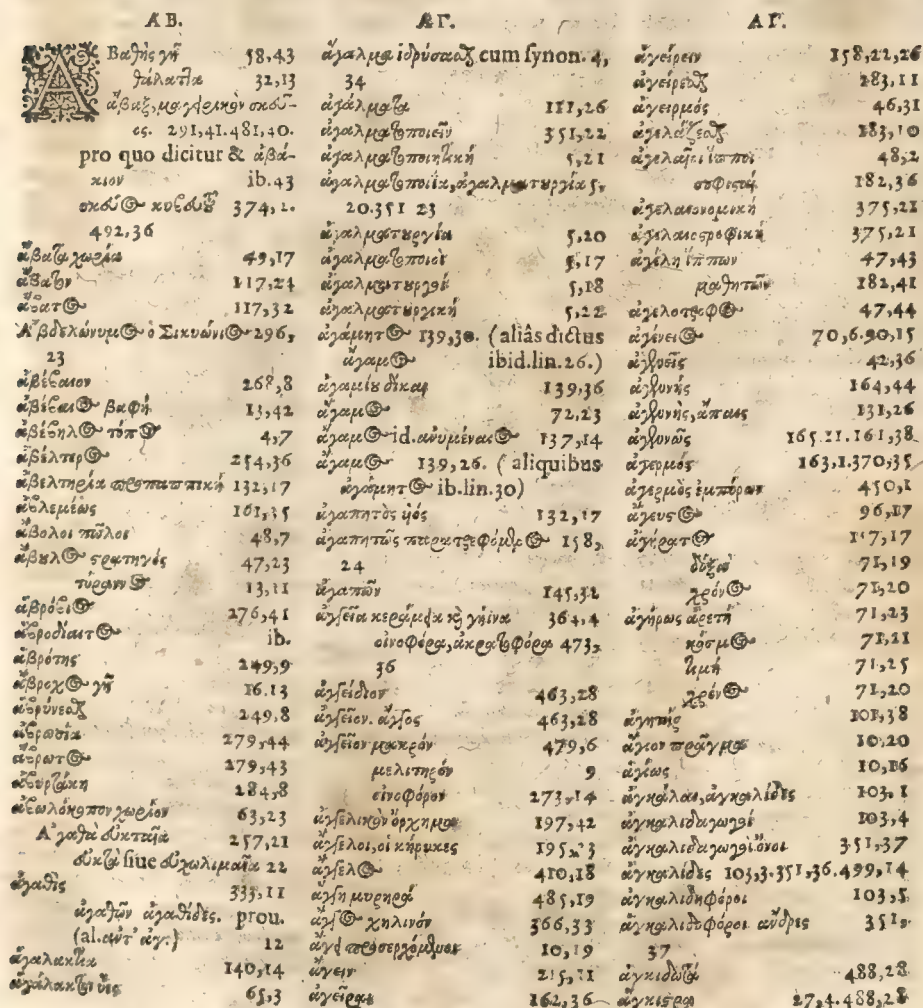 ΑΒ.
Ἀβαθὴς γῆ 58,43
θάλαττα 32,13
ἄβαξ, μαγειρικὸν σκεῦ-
ος. 291,41.481,40.
pro quo dicitur & ἀβά-
κιον ib.43
σκεῦος κυβευτοῦ 374,2.
492,36
ἄβατα χωρία 49,17
ἄβατον 117,24
ἄβατος 117,32
Ἀβδελώνυμος ὁ Σικυώνιος 296,
23
ἀβέβαιον 268,8
ἀβέβαιος βαφή 13,42
ἀβέβηλος τόπος 4,7
ἀβέλτερος 254,36
ἀβελτηρία 132,17
ἀβλεμέως 161,35
ἄβολοι πῶλοι 48,7
ἄβουλος στρατηγός 47,23
τύραννος 13,11
ἁβρόβιος 276,41
ἁβροδίαιτος ib.
ἁβρότης 249,9
ἄβροχος γῆ 16.13
ἁβρύνεσθαι 249,8
ἀβρωσία 279,44
ἄβρωτος 279,43
ἀβυρτάκη 284,8
ἀβωλόκοπον χωρίον 63,23
Ἀγαθὰ εὐκταῖα 257,21
εὐκτὰ siue 22
ἀγαθὶς 333,11
ἀγαθῶν ἀγαθίδες. prou.
(al. αὐτ' ἀγ.) 12
ἀγαλακτία 140,14
65,3
ΑΓ.
ἄγαλμα ἱδρύσασθαι cum synon. 4,
34
ἀγάλματα 111,26
ἀγαλματοποιεῖν 351,22
ἀγαλματοποιητικὴ 5,21
ἀγαλματοποιία, ἀγαλματουργία 5,
20.351 23
ἀγαλματουργία 5,20
ἀγαλματοποιοὶ 5,17
ἀγαλματουργοὶ 5,18
ἀγαλματουργικὴ 5,22
ἀγάμητος 139,30. (aliâs dictus
ἄγαμος ibid.lin.26.)
ἀγαμίου δίκαι 139,36
ἄγαμος 72,23
ἄγαμος id. ἀνυμέναιος 137,14
ἄγαμος 139,26. (aliquibus
ἀγάμητος ib.lin.30)
ἀγαπητὸς υἱός 132,17
ἀγαπητῶς παρατρεφόμενος 158,
24
ἀγαπῶν 145,32
ἀγγεῖα κεράμεια καὶ γήινα 364,4
οἰνοφόρα, ἀκρατοφόρα 473,
36
ἀγγείδιον 463,28
ἀγγεῖον. ἄγγος 463,28
ἀγγεῖον μακρόν 479,6
μελιτηρόν 9
οἰνοφόρον 273,14
ἀγγελικὸν ὄρχημα 197,42
ἄγγελοι, οἱ κήρυκες
ἄγγελος 410,18
ἄγγη μυρηρά 485,19
ἄγγος χηλινόν 366,33
10,19
ἄγειν 215,11
ἀγεῖραι 162,36
ΑΓ.
ἀγείρειν 158,22,26
ἀγείρεσθαι 283,11
ἀγειρμός 46,31
ἀγελάζεσθαι 183,10
ἀγελαῖοι ἵπποι 48,2
σοφισταὶ 182,36
ἀγελαιονομικὴ 375,21
ἀγελαιοτροφικὴ 375,21
ἀγέλη ἵππων 47,43
μαθητῶν 182,41
ἀγελοτρόφος 47,44
ἀγένειος 70,6.90,15
ἀγενεῖς 42,36
ἀγενής 164,44
ἀγενής, ἄπαις 131,26
ἀγενῶς 165.21.161,38
ἀγερμός 163,1.370,35
ἀγερμὸς ἐμπόρων 450,1
ἄγευστος 96,17
ἀγήρατος 117,17
δόξα 71,19
χρόνος 71,20
ἀγήρως ἀρετή 71,23
κόσμος 71,21
τιμή 71,25
χρόνος 71,20
ἀγητός 101,38
ἅγιον πρᾶγμα 10.20
ἁγίως 10,16
ἀγκάλαι, ἀγκαλίδες 103.1
ἀγκαλιδαγωγοὶ 103,4
ἀγκαλιδαγωγοὶ ὄνοι 351,37
ἀγκαλίδες 103,3.351,36.499,14
ἀγκαλιδηφόροι 103,5
ἀγκαλιδοφόροι ἄνδρες 351,
37
ἀγκιδωτά 488,28
ἄγκιστρα 27,4.488,28